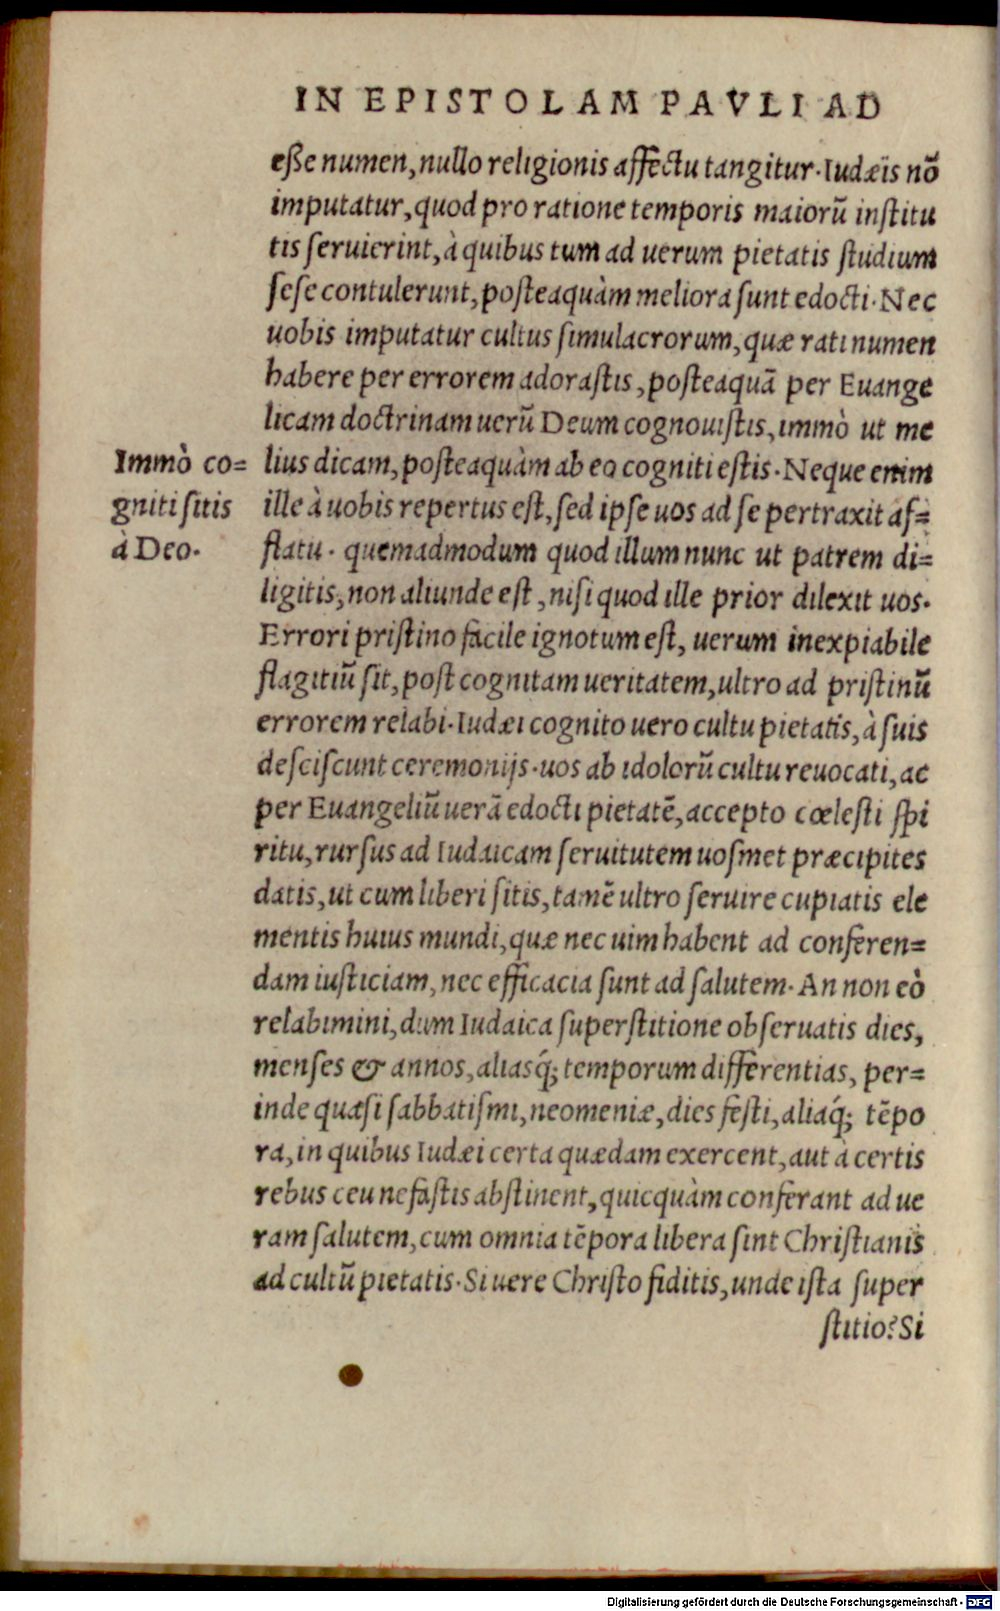 IN EPISTOLAM PAVLI AD
eſſe numen, nullo religionis affectu tangitur. Iudæis nõ
imputatur, quod pro ratione temporis maiorũ inſtitu
tis ſeruierint, à quibus tum ad uerum pietatis ſtudium
ſeſe contulerunt, poſteaquàm meliora ſunt edocti. Nec
uobis imputatur cultus ſimulacrorum, quæ rati numen
habere per errorem adoraſtis, poſteaquã per Euange
licam doctrinam uerũ Deum cognouiſtis, immò ut me
Immò co=
gniti ſitis
à Deo.
lius dicam, poſteaquàm ab eo cogniti eſtis. Neque enim
ille à uobis repertus eſt, ſed ipſe uos ad ſe pertraxit af=
flatu. quemadmodum quod illum nunc ut patrem di=
ligitis, non aliunde eſt, niſi quod ille prior dilexit uos.
Errori priſtino facile ignotum eſt, uerum inexpiabile
flagitiũ ſit, poſt cognitam ueritatem, ultro ad priſtinũ
errorem relabi. Iudæi cognito uero cultu pietatis, à ſuis
deſciſcunt ceremonijs. uos ab idolorũ cultu reuocati, ac
per Euangeliũ uerã edocti pietatẽ, accepto cœleſti ſpi
ritu, rurſus ad Iudaicam ſeruitutem uoſmet præcipites
datis, ut cum liberi ſitis, tamẽ ultro ſeruire cupiatis ele
mentis huius mundi, quæ nec uim habent ad conferen=
dam iuſticiam, nec efficacia ſunt ad ſalutem. An non eò
relabimini, dum Iudaica ſuperſtitione obſeruatis dies,
menſes & annos, aliasq́; temporum differentias, per=
inde quaſi ſabbatiſmi, neomeniæ, dies feſti, aliaq́; tẽpo
ra, in quibus Iudæi certa quædam exercent, aut à certis
rebus ceu nefaſtis abſtinent, quicquàm conferant ad ue
ram ſalutem, cum omnia tẽpora libera ſint Chriſtianis
ad cultũ pietatis. Si uere Chriſto fiditis, unde iſta ſuper
ſtitio? Si
Digitalisierung gefördert durch die Deutsche Forschungsgemeinschaft - DFG